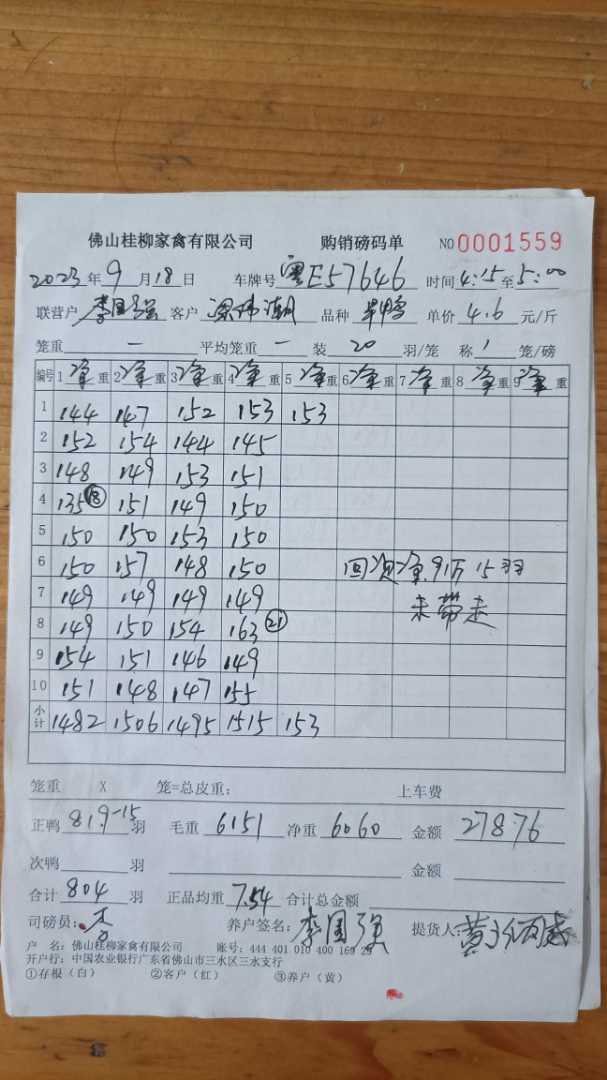 佛山桂柳家禽有限公司 购销磅码单 NO 0001559
2023年9月18日 车牌号 粤E57646 时间 4:15至5:00
联营户 李国强 客户 品种 单价 4.6 元/斤
笼重 — 平均笼重 — 装 20 羽/笼 称 1 笼/磅
编号 1 净重 2 净重 3 净重 4 净重 5 净重 6 净重 7 净重 8 净重 9 净重
1 144 147 152 153 153
2 152 154 144 145
3 148 149 153 151
4 135 ⑱ 151 149 150
5 150 150 153 150
6 150 157 148 150 回资净.91斤 15羽
7 149 149 149 149 未带走
8 149 150 154 163 ㉑
9 154 151 146 149
10 151 148 147 155
小计 1482 1506 1495 1515 153
笼重 X 笼=总皮重: 上车费
正鸭 819-15 羽 毛重 6151 净重 6060 金额 27876
次鸭 羽 金额
合计 804 羽 正品均重 7.54 合计总金额
司磅员: 养户签名: 李国强 提货人:
户 名: 佛山桂柳家禽有限公司 账号: 444 401 010 400 169 29
开户行: 中国农业银行广东省佛山市三水区三水支行
①存根(白) ②客户(红) ③养户(黄)